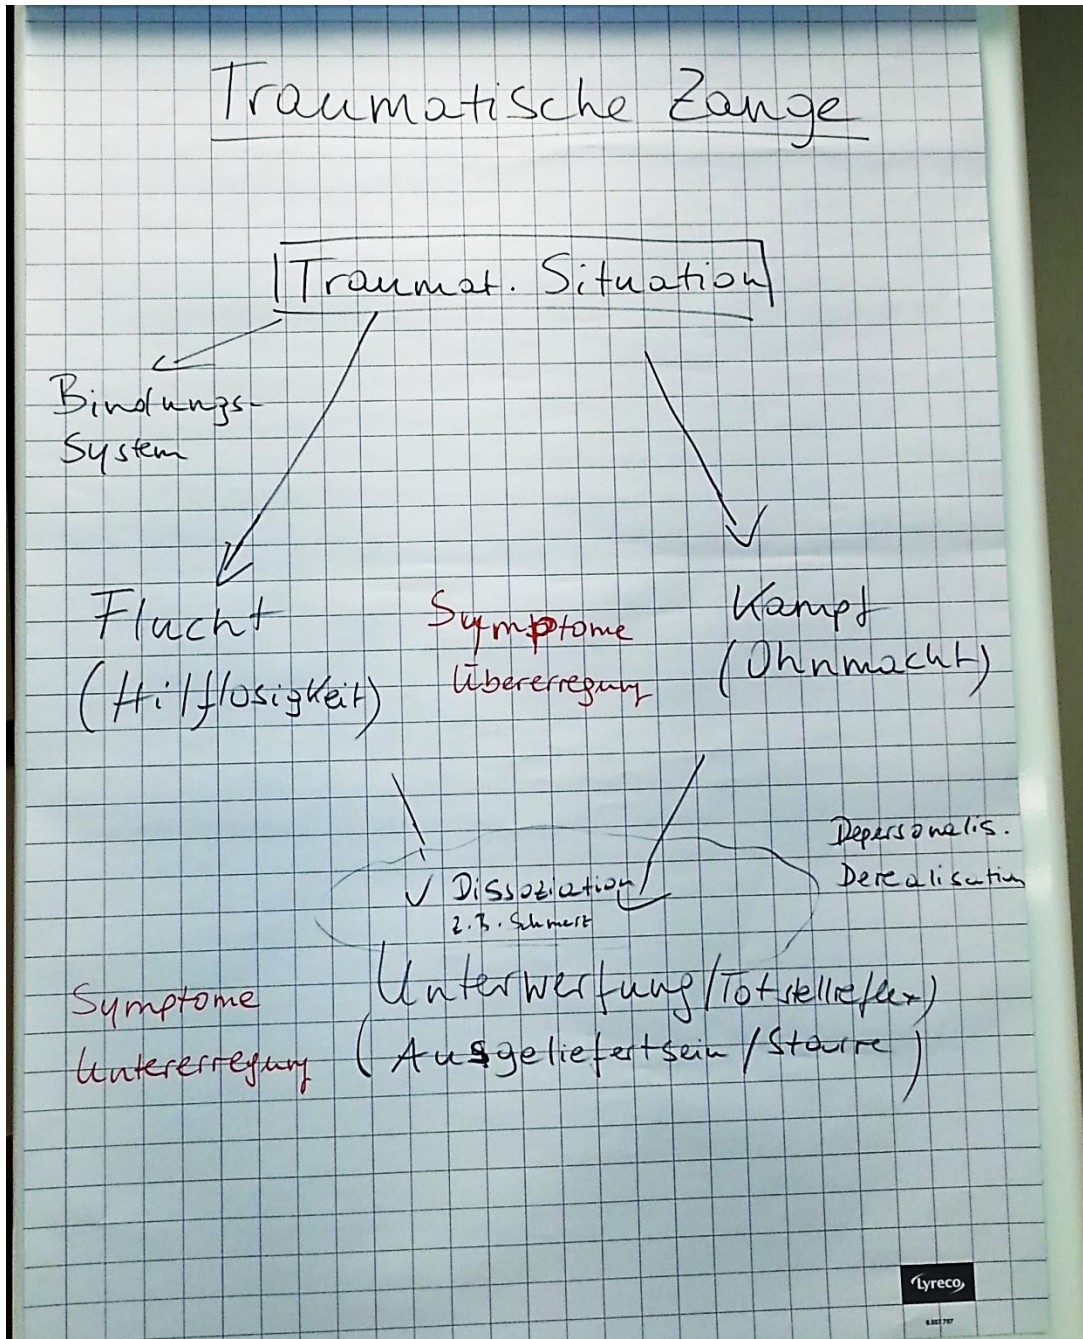 Traumatische Zange
Traumat. Situation
Bindungs-
System
Flucht
(Hilflosigkeit)
Symptome
Übererregung
Kampf
(Ohnmacht)
Depersonalis.
Derealisation
Dissoziation
z.B. Schmerz
Symptome
Untererregung
Unterwerfung/Totstellreflex)
(Ausgeliefertsein/Starre)
Lyreco